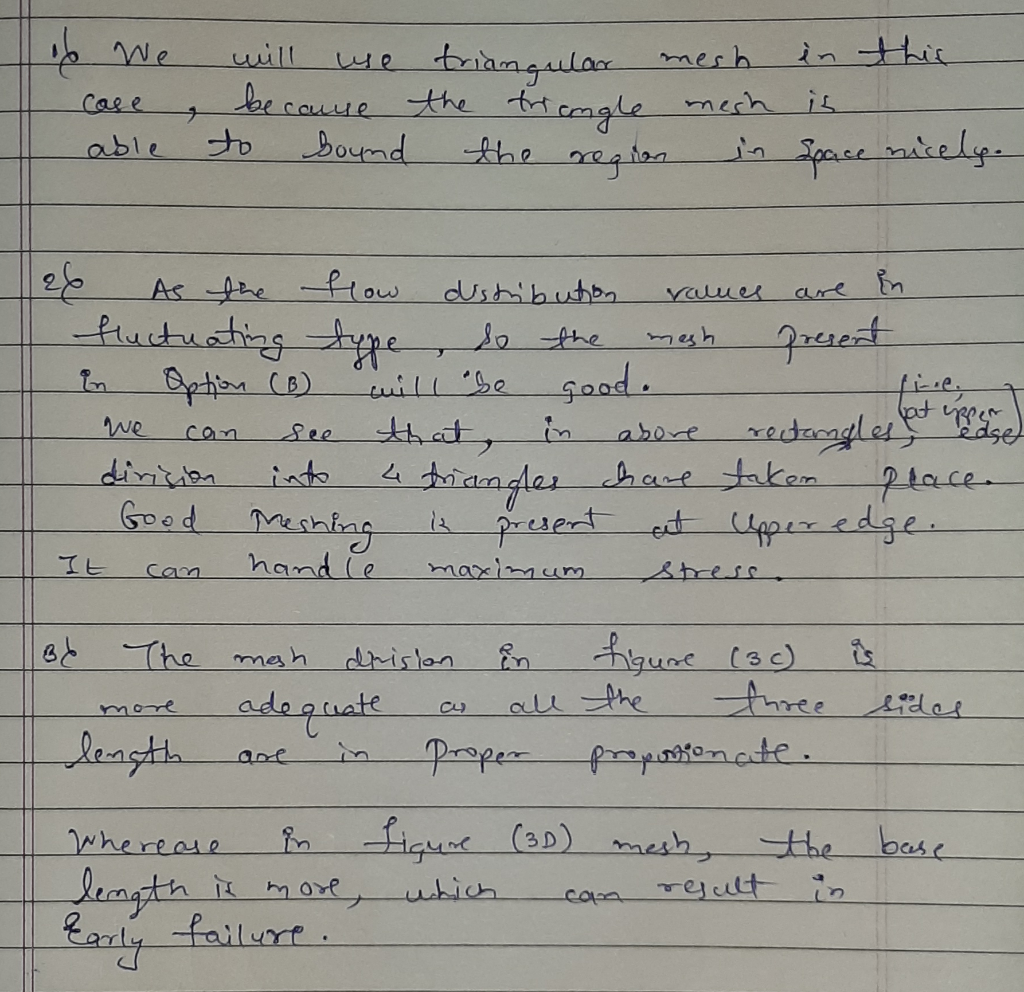 1) We will use triangular mesh in this
case , because the triangle mesh is
able to bound the region in space nicely.
2) As the flow distribution values are in
fluctuating type , so the mesh present
in Option (B) will be good.
We can see that, in above rectangles, (i.e. at upper edge)
division into 4 triangles have taken place.
Good Meshing is present at Upper edge.
It can handle maximum stress.
3) The mesh division in figure (3C) is
more adequate as all the three sides
length are in proper proportionate.
Wherease in figure (3D) mesh, the base
length is more, which can result in
Early failure.